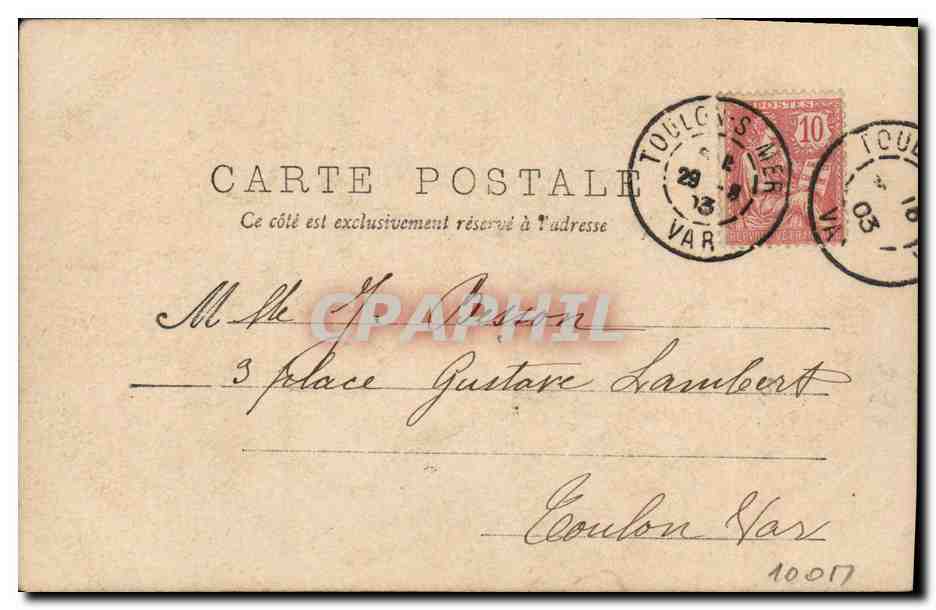 POSTES
10
TOULON-S-MER
29 -8
03
VAR
TOUL
03
VA
CARTE POSTALE
Ce côté est exclusivement réservé à l'adresse
CPAPHIL
Mlle Y. Besson
3 place Gustave Lambert
Toulon Var
100M